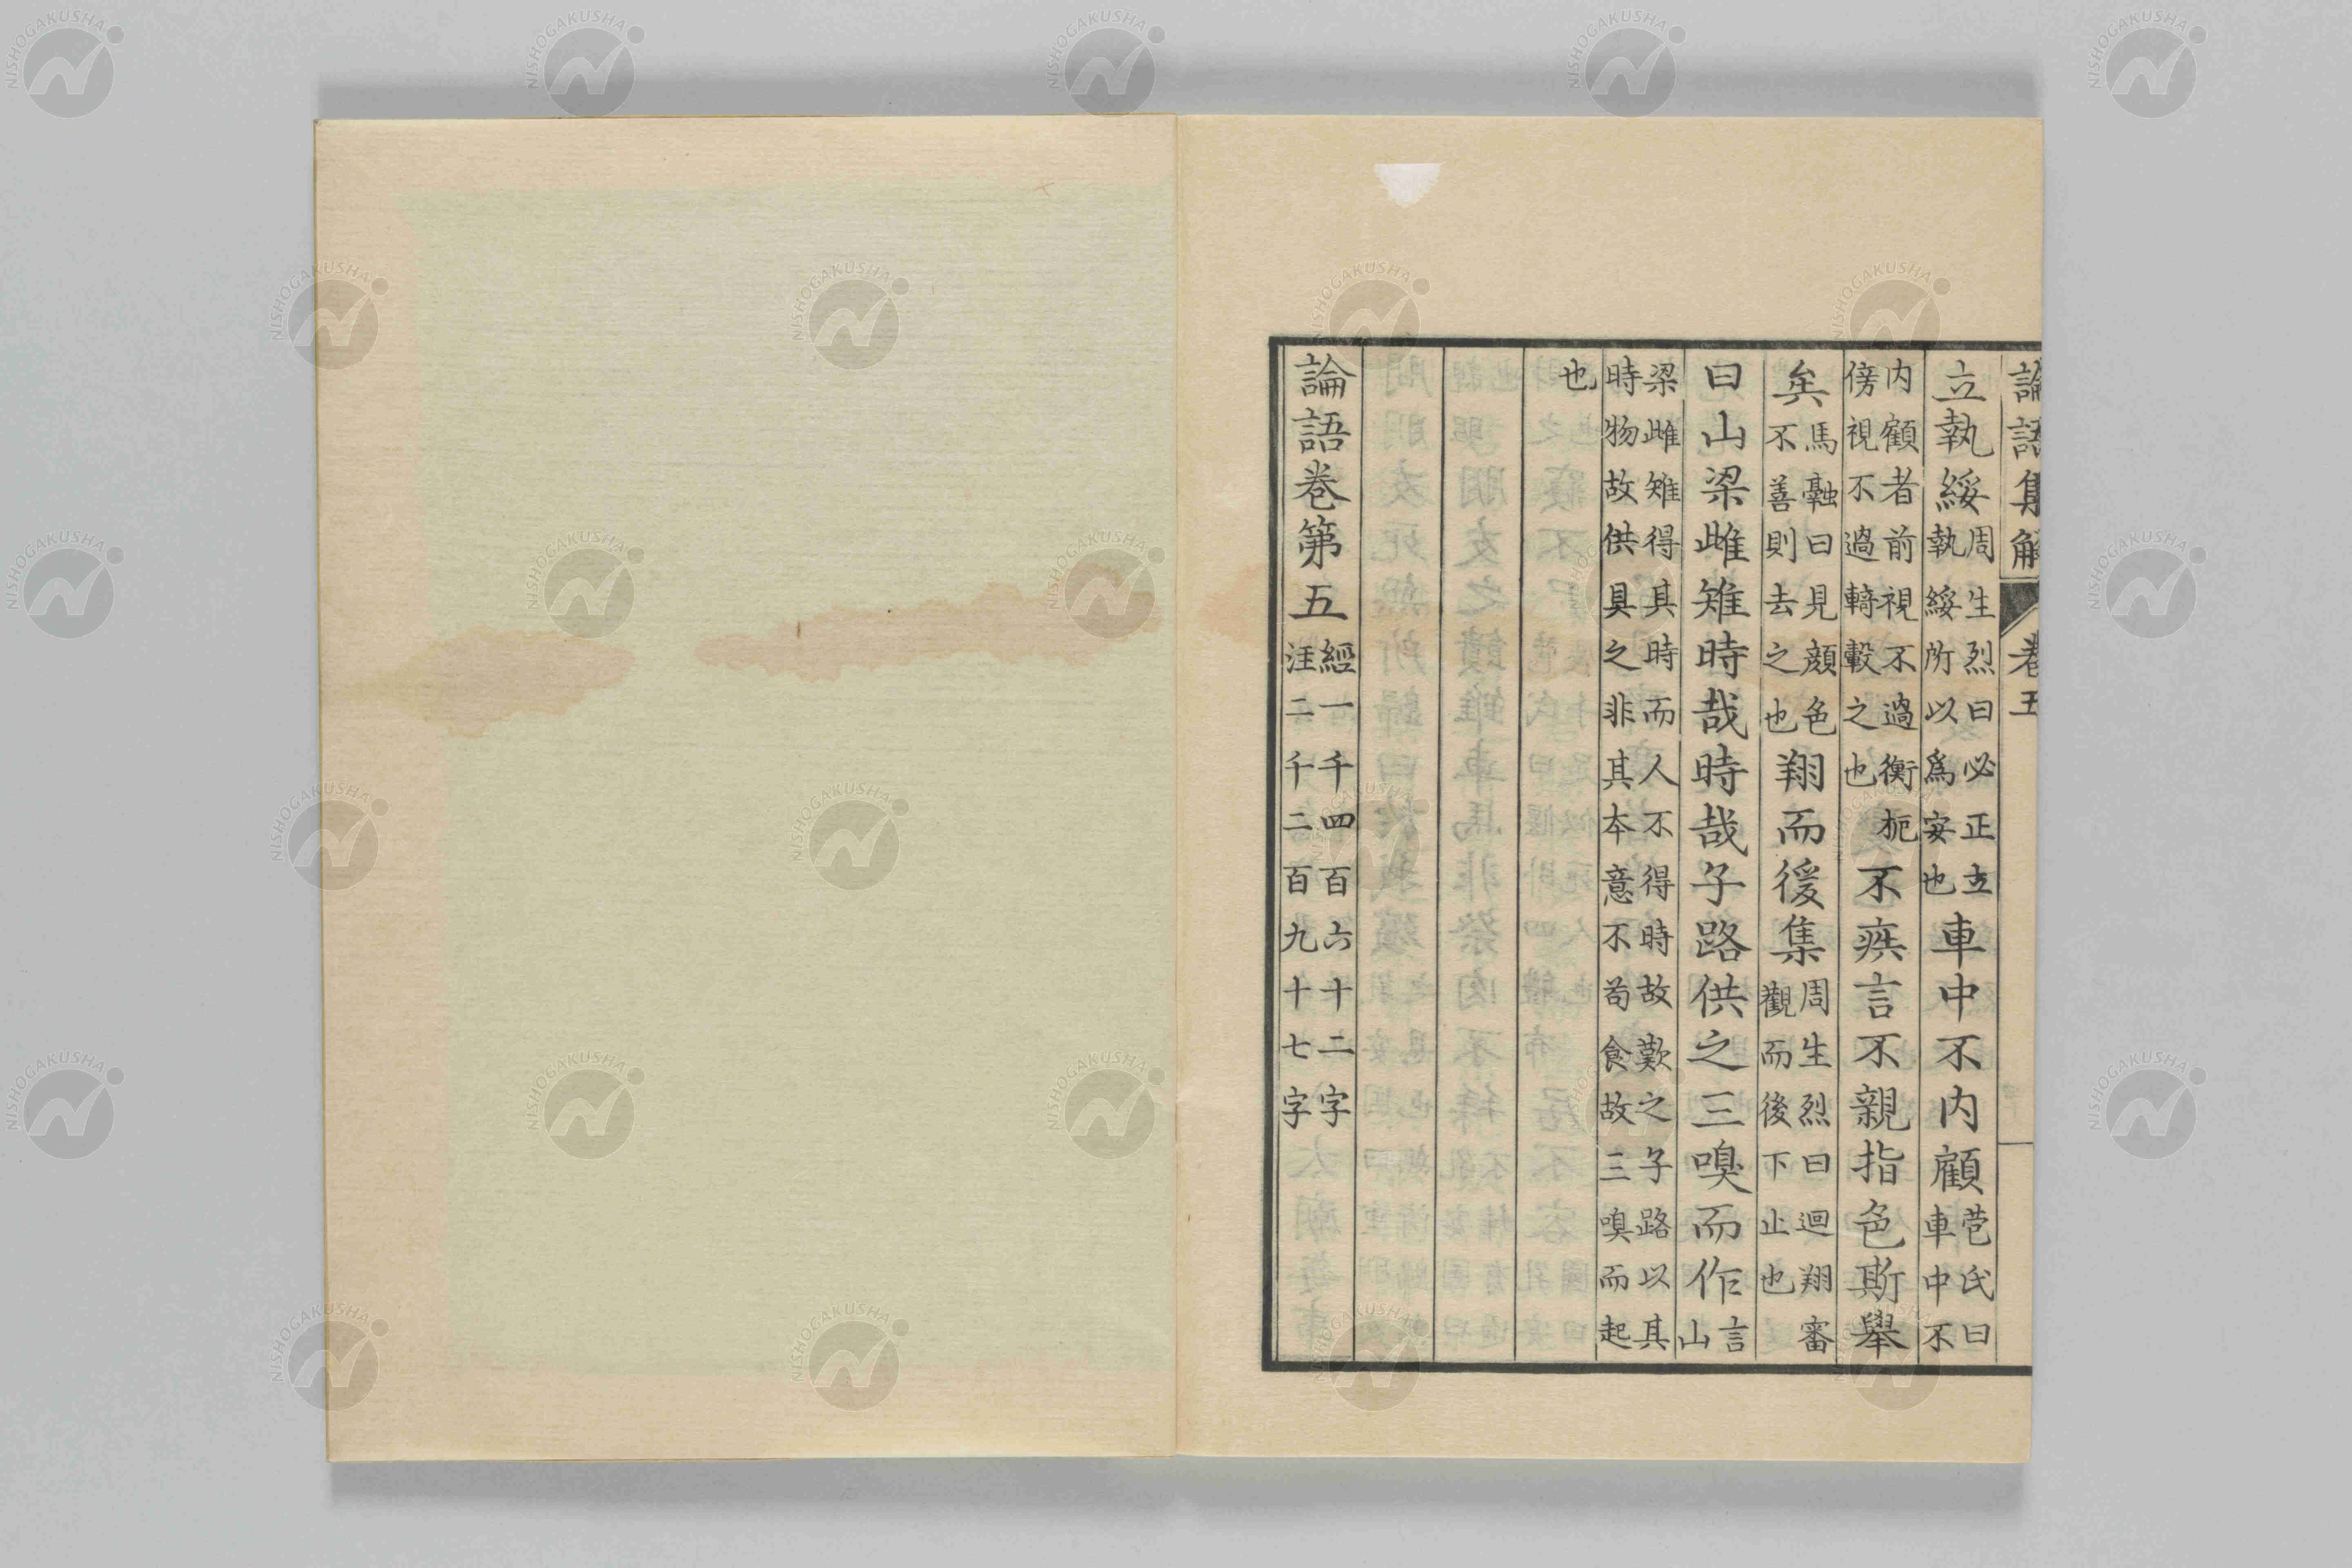 論語集解 卷五
立執綏周生烈曰必正立執綏所以爲安也車中不內顧苞氏曰車中不
內顧者前視不過衡枙傍視不過輢轂之也不疾言不親指色斯舉
矣馬融曰見顏色不善則去之也翔而後集周生烈曰迴翔審觀而後下止也
曰山梁雌雉時哉時哉子路供之三嗅而作言山
梁雌雉得其時而人不得時故歎之子路以其時物故供具之非其本意不苟食故三嗅而起
也
論語卷第五經一千四百六十二字注二千二百九十七字
NISHOGAKUSHA